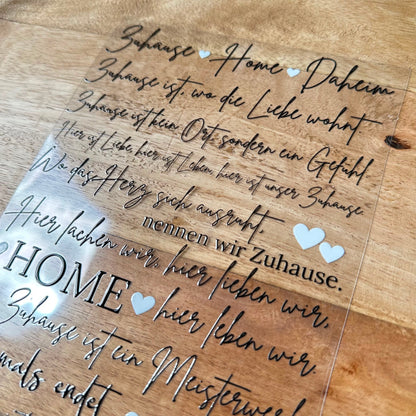 Zuhause Home Daheim
Zuhause ist, wo die Liebe wohnt
Zuhause ist kein Ort, sondern ein Gefühl
Hier ist Liebe, hier ist Leben, hier ist unser Zuhause.
Wo das Herz sich ausruht,
nennen wir Zuhause.
Hier lachen wir, hier lieben wir,
HOME hier leben wir.
Zuhause ist ein Meisterwerk
mals endet